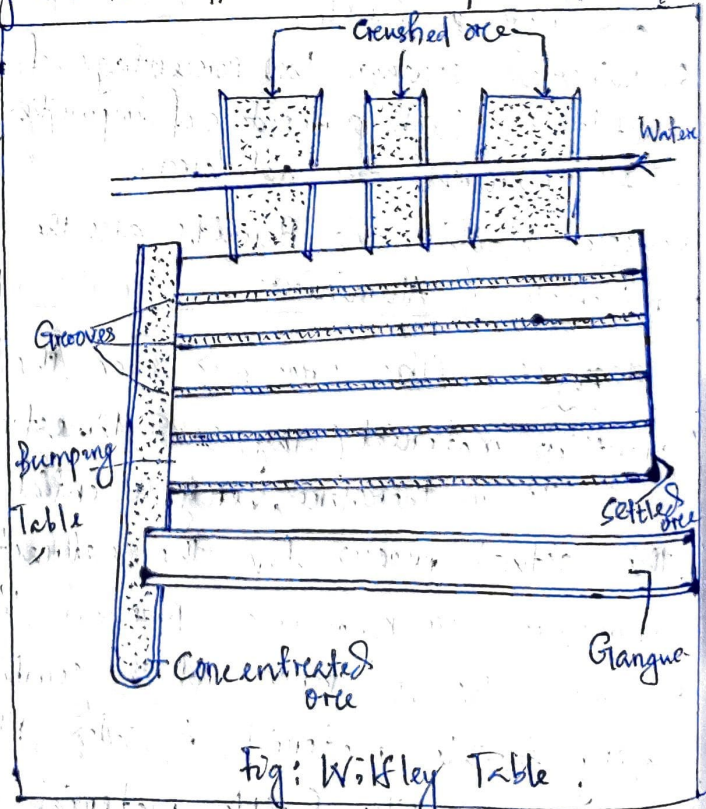 Crushed ore
Water
Grooves
Bumping
Table
Settled
ore
Gangue
Concentrated
ore
Fig: Wilfley Table